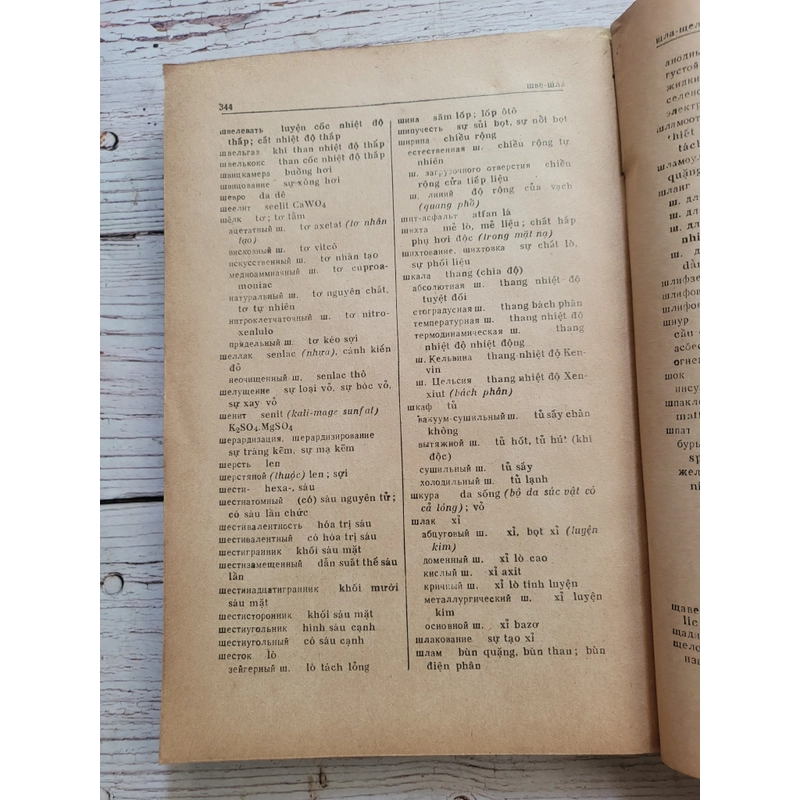 344
шве-шла
швелевать luyện cốc nhiệt độ
thấp; cất nhiệt độ thấp
швельгаз khí than nhiệt độ thấp
швелькокс than cốc nhiệt độ thấp
швицкамера buồng hơi
швицование sự xông hơi
шевро da dê
шеелит seelit CaWO4
шёлк tơ; tơ tằm
ацетатный ш. tơ axetat (tơ nhân
tạo)
вискозный ш. tơ vitcô
искусственный ш. tơ nhân tạo
медноаммиачный ш. tơ cuproa-
moniac
натуральный ш. tơ nguyên chất,
tơ tự nhiên
нитроклетчаточный ш. tơ nitro-
xenlulo
прядельный ш. tơ kéo sợi
шеллак senlac (nhựa), cánh kiến
đỏ
неочищенный ш. senlac thô
шелушение sự loại vỏ, sự bóc vỏ,
sự xay vỏ
шенит senit (kali-mage sunfat)
K2SO4.MgSO4
шерардизация, шерардизирование
sự tráng kẽm, sự mạ kẽm
шерсть len
шерстяной (thuộc) len; sợi
шести- hexa-, sáu
шестиатомный (có) sáu nguyên tử;
có sáu lần chức
шестивалентность hóa trị sáu
шестивалентный có hóa trị sáu
шестигранник khối sáu mặt
шестизамещенный dẫn suất thế sáu
lần
шестинадцатигранник khối mười
sáu mặt
шестисторонник khối sáu mặt
шестиугольник hình sáu cạnh
шестиугольный có sáu cạnh
шесток lò
зейгерный ш. lò tách lỏng
шина săm lốp; lốp ôtô
шипучесть sự sủi bọt, sự nổi bọt
ширина chiều rộng
естественная ш. chiều rộng tự
nhiên
ш. загрузочного отверстия chiều
rộng cửa tiếp liệu
ш. линий độ rộng của vạch
(quang phổ)
шит-асфальт atfan lá
шихта mẻ lò, mẻ liệu; chất hấp
phụ hơi độc (trong mặt nạ)
шихтование, шихтовка sự chất lò,
sự phối liệu
шкала thang (chia độ)
абсолютная ш. thang nhiệt độ
tuyệt đối
стоградусная ш. thang bách phân
температурная ш. thang nhiệt độ
термодинамическая ш. thang
nhiệt độ nhiệt động
ш. Кельвина thang nhiệt độ Ken-
vin
ш. Цельсия thang nhiệt độ Xen-
xiut (bách phân)
шкаф tủ
вакуум-сушильный ш. tủ sấy chân
không
вытяжной ш. tủ hốt, tủ hút (khí
độc)
сушильный ш. tủ sấy
холодильный ш. tủ lạnh
шкура da sống (bộ da súc vật có
cả lông); vỏ
шлак xỉ
абцуговый ш. xỉ, bọt xỉ (luyện
kim)
доменный ш. xỉ lò cao
кислый ш. xỉ axit
кричный ш. xỉ lò tinh luyện
металлургический ш. xỉ luyện
kim
основной ш. xỉ bazơ
шлакование sự tạo xỉ
шлам bùn quặng, bùn than; bùn
điện phân
шла-щел
анодны
густой
жидки
селено
электр
шламоот
thiết
tách
шламоул
quặng
шланг
ш. дл
ш. дл
ш. дл
nhiê
ш. д
dẫn
шлифзе
шлифов
шлифов
шнур
cầu c
асбес
огнег
шок
инсу
шпакле
mati
шпат
буры
sp
жел
nh
щаве
lic
щади
щело
изв